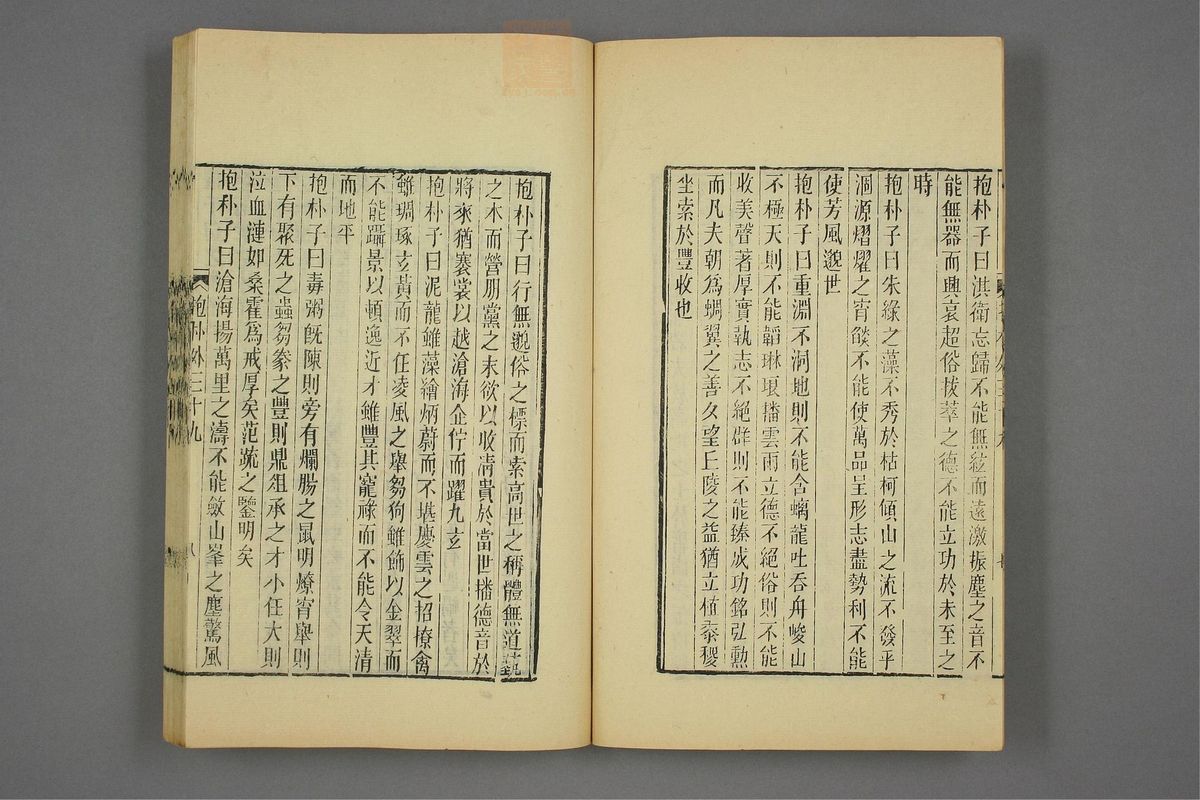 抱朴子曰淇衛忘歸不能無弦而遠激振塵之音不
能無器而興哀超俗拔萃之德不能立功於未至之
時
抱朴子曰朱綠之藻不秀於枯柯傾山之流不發乎
涸源熠燿之宵燄不能使萬品呈形志盡勢利不能
使芳風邈世
抱朴子曰重淵不洞地則不能含螭龍吐吞舟峻山
不極天則不能韜琳琅播雲雨立德不絕俗則不能
收美聲著厚實執志不絕群則不能臻成功銘弘勳
而凡夫朝為蜩翼之善夕望丘陵之益猶立植黍稷
坐索於豐收也
抱朴子曰行無邈俗之標而索高世之稱體無道藝
之本而營朋黨之末欲以收清貴於當世播德音於
將來猶褰裳以越滄海企佇而躍九玄
抱朴子曰泥龍雖藻繪炳蔚而不堪慶雲之招撩禽
雖琱琢玄黃而不任凌風之舉芻狗雖飾以金翠而
不能躡景以頓逸近才雖豐其寵祿而不能令天清
而地平
抱朴子曰毒粥旣陳則旁有爛腸之鼠明燎宵舉則
下有聚死之蟲芻豢之豐則鼎俎承之才小任大則
泣血漣如桑霍為戒厚矣范疏之鑒明矣
抱朴子曰滄海揚萬里之濤不能斂山峯之塵驚風
抱朴外三十九
八